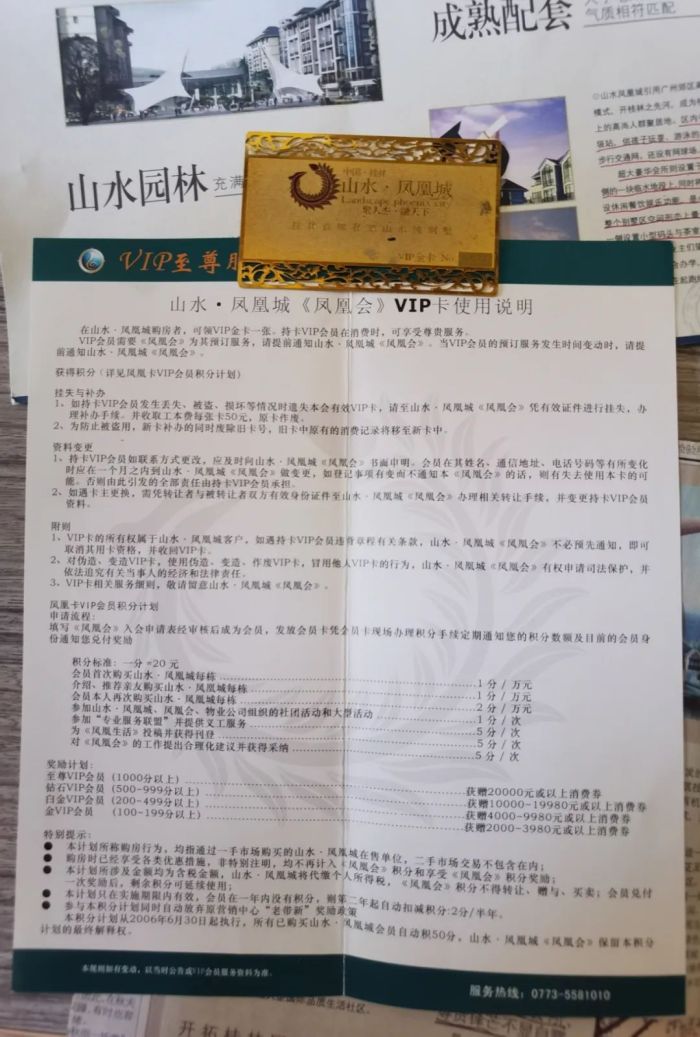 成熟配套
气质相符匹配
山水园林 充满
◎山水凤凰城引用广州郊区
模式，开桂林之先河，成为
上的高尚人群聚居地。区内
步行交通网，还设有网球场
超大豪华会所则设置于
侧的一块临水地段上，同时
中国·桂林
山水·凤凰城
Landscape phoenix city
聚人杰·融天下
VIP金卡 No
VIP至尊
山水·凤凰城《凤凰会》VIP卡使用说明
在山水·凤凰城购房者，可领VIP金卡一张。持卡VIP会员在消费时，可享受尊贵服务。
VIP会员需要《凤凰会》为其预订服务，请提前通知山水·凤凰城《凤凰会》。当VIP会员的预订服务发生时间变动时，请提
前通知山水·凤凰城《凤凰会》。
获得积分（详见凤凰卡VIP会员积分计划）
挂失与补办
1、如持卡VIP会员发生丢失、被盗、损坏等情况时遗失本会有效VIP卡，请至山水·凤凰城《凤凰会》凭有效证件进行挂失，办
理补办手续。并收取工本费每张卡50元，原卡作废。
2、为防止被盗用，新卡补办的同时废除旧卡号，旧卡中原有的消费记录将移至新卡中。
资料变更
1、持卡VIP会员如联系方式更改，应及时向山水·凤凰城《凤凰会》书面申明。会员在其姓名、通信地址、电话号码等有所变化
时应在一个月之内到山水·凤凰城《凤凰会》做变更，如登记事项有变而不通知本《凤凰会》的话，则有失去使用本卡的可
能。否则由此引发的全部责任由持卡VIP会员承担。
2、如遇卡主更换，需凭转让者与被转让者双方有效身份证件至山水·凤凰城《凤凰会》办理相关转让手续，并变更持卡VIP会员
资料。
附则
1、VIP卡的所有权属于山水·凤凰城客户，如遇持卡VIP会员违背章程有关条款，山水·凤凰城《凤凰会》不必预先通知，即可
取消其用卡资格，并收回VIP卡。
2、对伪造、变造VIP卡，使用伪造、变造、作废VIP卡，冒用他人VIP卡的行为，山水·凤凰城《凤凰会》有权申请司法保护，并
依法追究有关当事人的经济和法律责任。
3、VIP卡相关服务细则，敬请留意山水·凤凰城《凤凰会》。
凤凰卡VIP会员积分计划
申请流程：
填写《凤凰会》入会申请表经审核后成为会员，发放会员卡凭会员卡现场办理积分手续定期通知您的积分数额及目前的会员身
份通知您兑付奖励
积分标准：一分=20元
会员首次购买山水·凤凰城每栋……1分/万元
介绍、推荐亲友购买山水·凤凰城每栋……1分/万元
会员本人再次购买山水·凤凰城每栋……2分/万元
参加山水·凤凰城、凤凰会、物业公司组织的社团活动和大型活动……1分/次
参加“专业服务联盟”并提供义工服务……5分/次
为《凤凰生活》投稿并获得刊登……5分/次
对《凤凰会》的工作提出合理化建议并获得采纳……5分/次
奖励计划：
至尊VIP会员（1000分以上）……获赠20000元或以上消费券
钻石VIP会员（500-999分以上）……获赠10000-19980元或以上消费券
白金VIP会员（200-499分以上）……获赠4000-9980元或以上消费券
金VIP会员（100-199分以上）……获赠2000-3980元或以上消费券
特别提示：
● 本计划所称购房行为，均指通过一手市场购买的山水·凤凰城在售单位，二手市场交易不包含在内；
● 购房时已经享受各类优惠措施，非特别注明，均不再计入《凤凰会》积分和享受《凤凰会》积分奖励；
● 本计划所涉及金额均为含税金额，山水·凤凰城将代缴个人所得税，《凤凰会》积分不得转让、赠与、买卖；会员兑付
一次奖励后，剩余积分可延续使用；
● 本计划只在实施期限内有效，会员在一年内没有积分，则第二年起自动扣减积分：2分/半年。
● 参与本积分计划同时自动放弃原营销中心“老带新”奖励政策
本积分计划从2006年6月30日起执行，所有已购买山水·凤凰城会员自动积50分，山水·凤凰城《凤凰会》保留本积分
计划的最终解释权。
本规则如有变动，以当时公告或VIP会员服务资料为准。
服务热线：0773-5581010